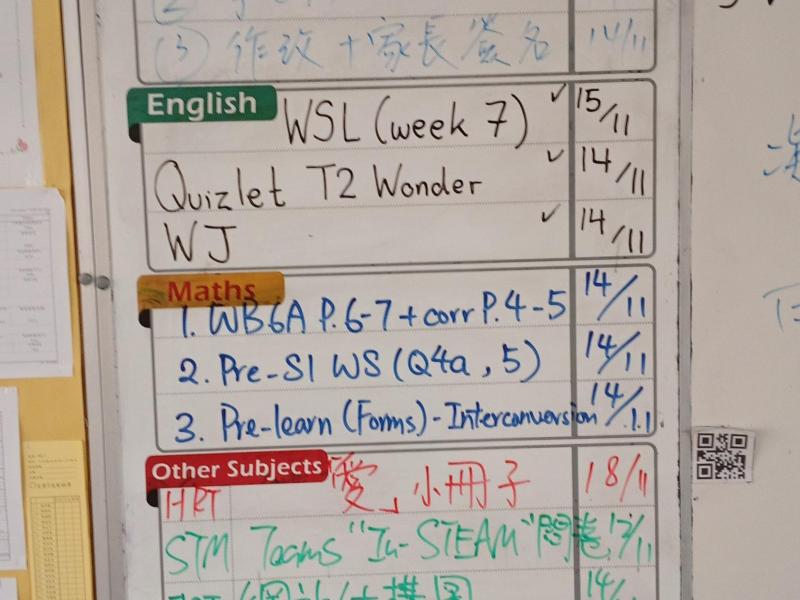 ③ 作改 + 家長簽名 14/11
English
WSL (week 7) ✓ 15/11
Quizlet T2 Wonder ✓ 14/11
WJ ✓ 14/11
Maths
1. WB6A P.6-7 + corr P.4-5 14/11
2. Pre-S1 WS (Q4a, 5) 14/11
3. Pre-learn (Forms) - Interconversion 14/11
Other Subjects
HRT 「愛」小冊子 18/11
STM Teams "In-STEAM" 問卷 17/11
14/